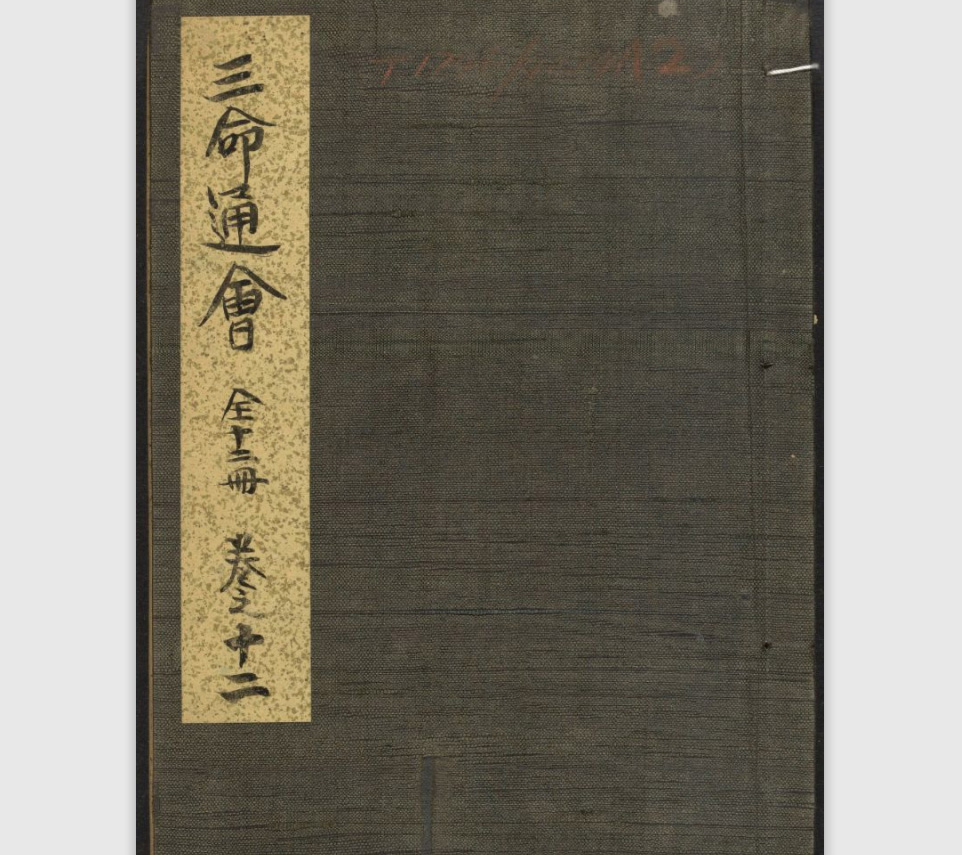 三命通會 全十二冊 卷之十二